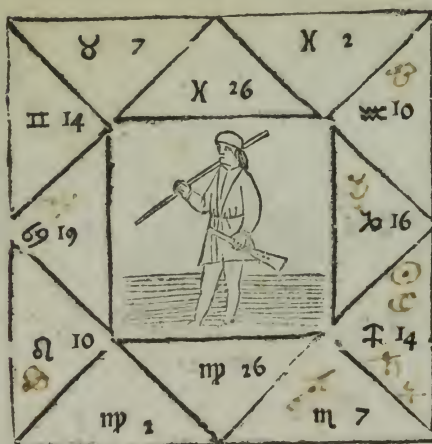 ♉ 7 ♓ 2
♓ 26
♊ 14 ♒ 10
♋ 19 ♑ 16
♌ 10 ♐ 14
♍ 26
♍ 2 ♏ 7